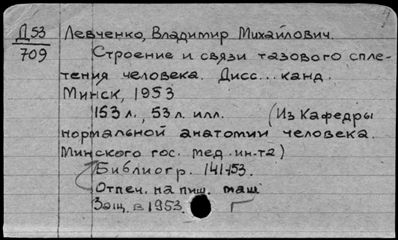 Д53
709
Левченко, Владимир Михайлович.
Строение и связи тазового спле-
тения человека. Дисс... канд.
Минск, 1953
153 л., 53 л. илл. (Из Кафедры
нормальной анатомии человека.
Минского гос. мед. ин-та)
Библиогр. 141-153.
Отпеч. на пиш. маш.
Защ. в 1953.